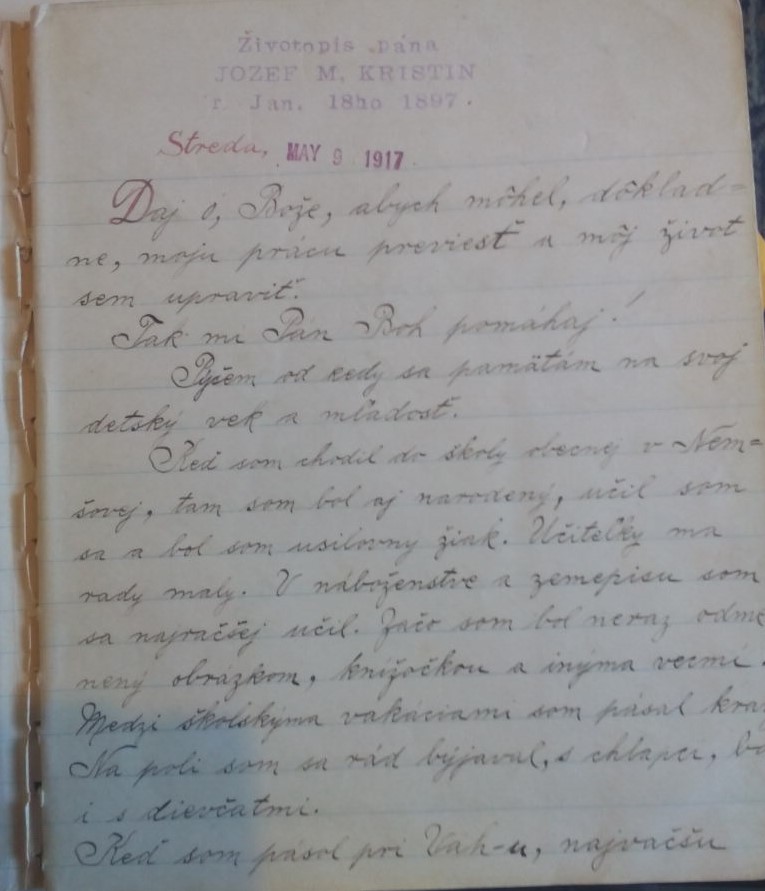 Životopis pána
JOZEF M. KRISTIN
r. Jan. 18ho 1897.
Streda, MAY 9 1917.
Daj ó, Bože, abych môhel, dôklad=
ne, moju prácu previesť a môj život
sem upraviť.
Tak mi Pán Boh pomáhaj!
Pýšem od kedy sa pamätám na svoj
detský vek a mladosť.
Keď som chodil do školy obecnej v Nem=
šovej, tam som bol aj narodený, učil som
sa a bol som usilovny žiak. Učiteľky ma
rady maly. V náboženstve a zemepisu som
sa najračšej učil. Začo som bol neraz odme
nený obrázkom, knižočkou a inýma vecmi.
Medzi školskýma vakáciami som pásal
Na poli som sa rád býjaval, s chlapci,
i s dievčatmi.
Keď som pásol pri Váh-u, najvačšu